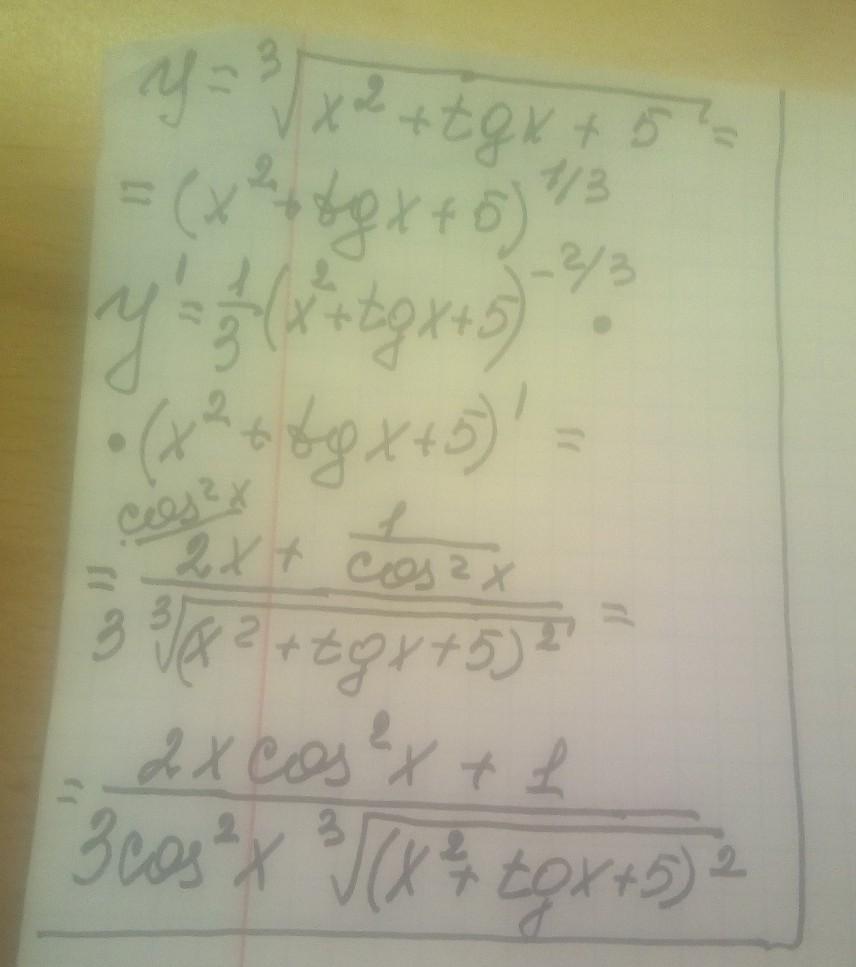 y = ∛(x² + tgx + 5) =
= (x² + tgx + 5)^1/3
y' = 1/3 (x² + tgx + 5)^-2/3 •
• (x² + tgx + 5)' =
= (cos²x/ 2x + 1/cos²x) / (3 ∛(x² + tgx + 5)²) =
= (2x cos²x + 1) / (3cos²x ∛(x² + tgx + 5)²)